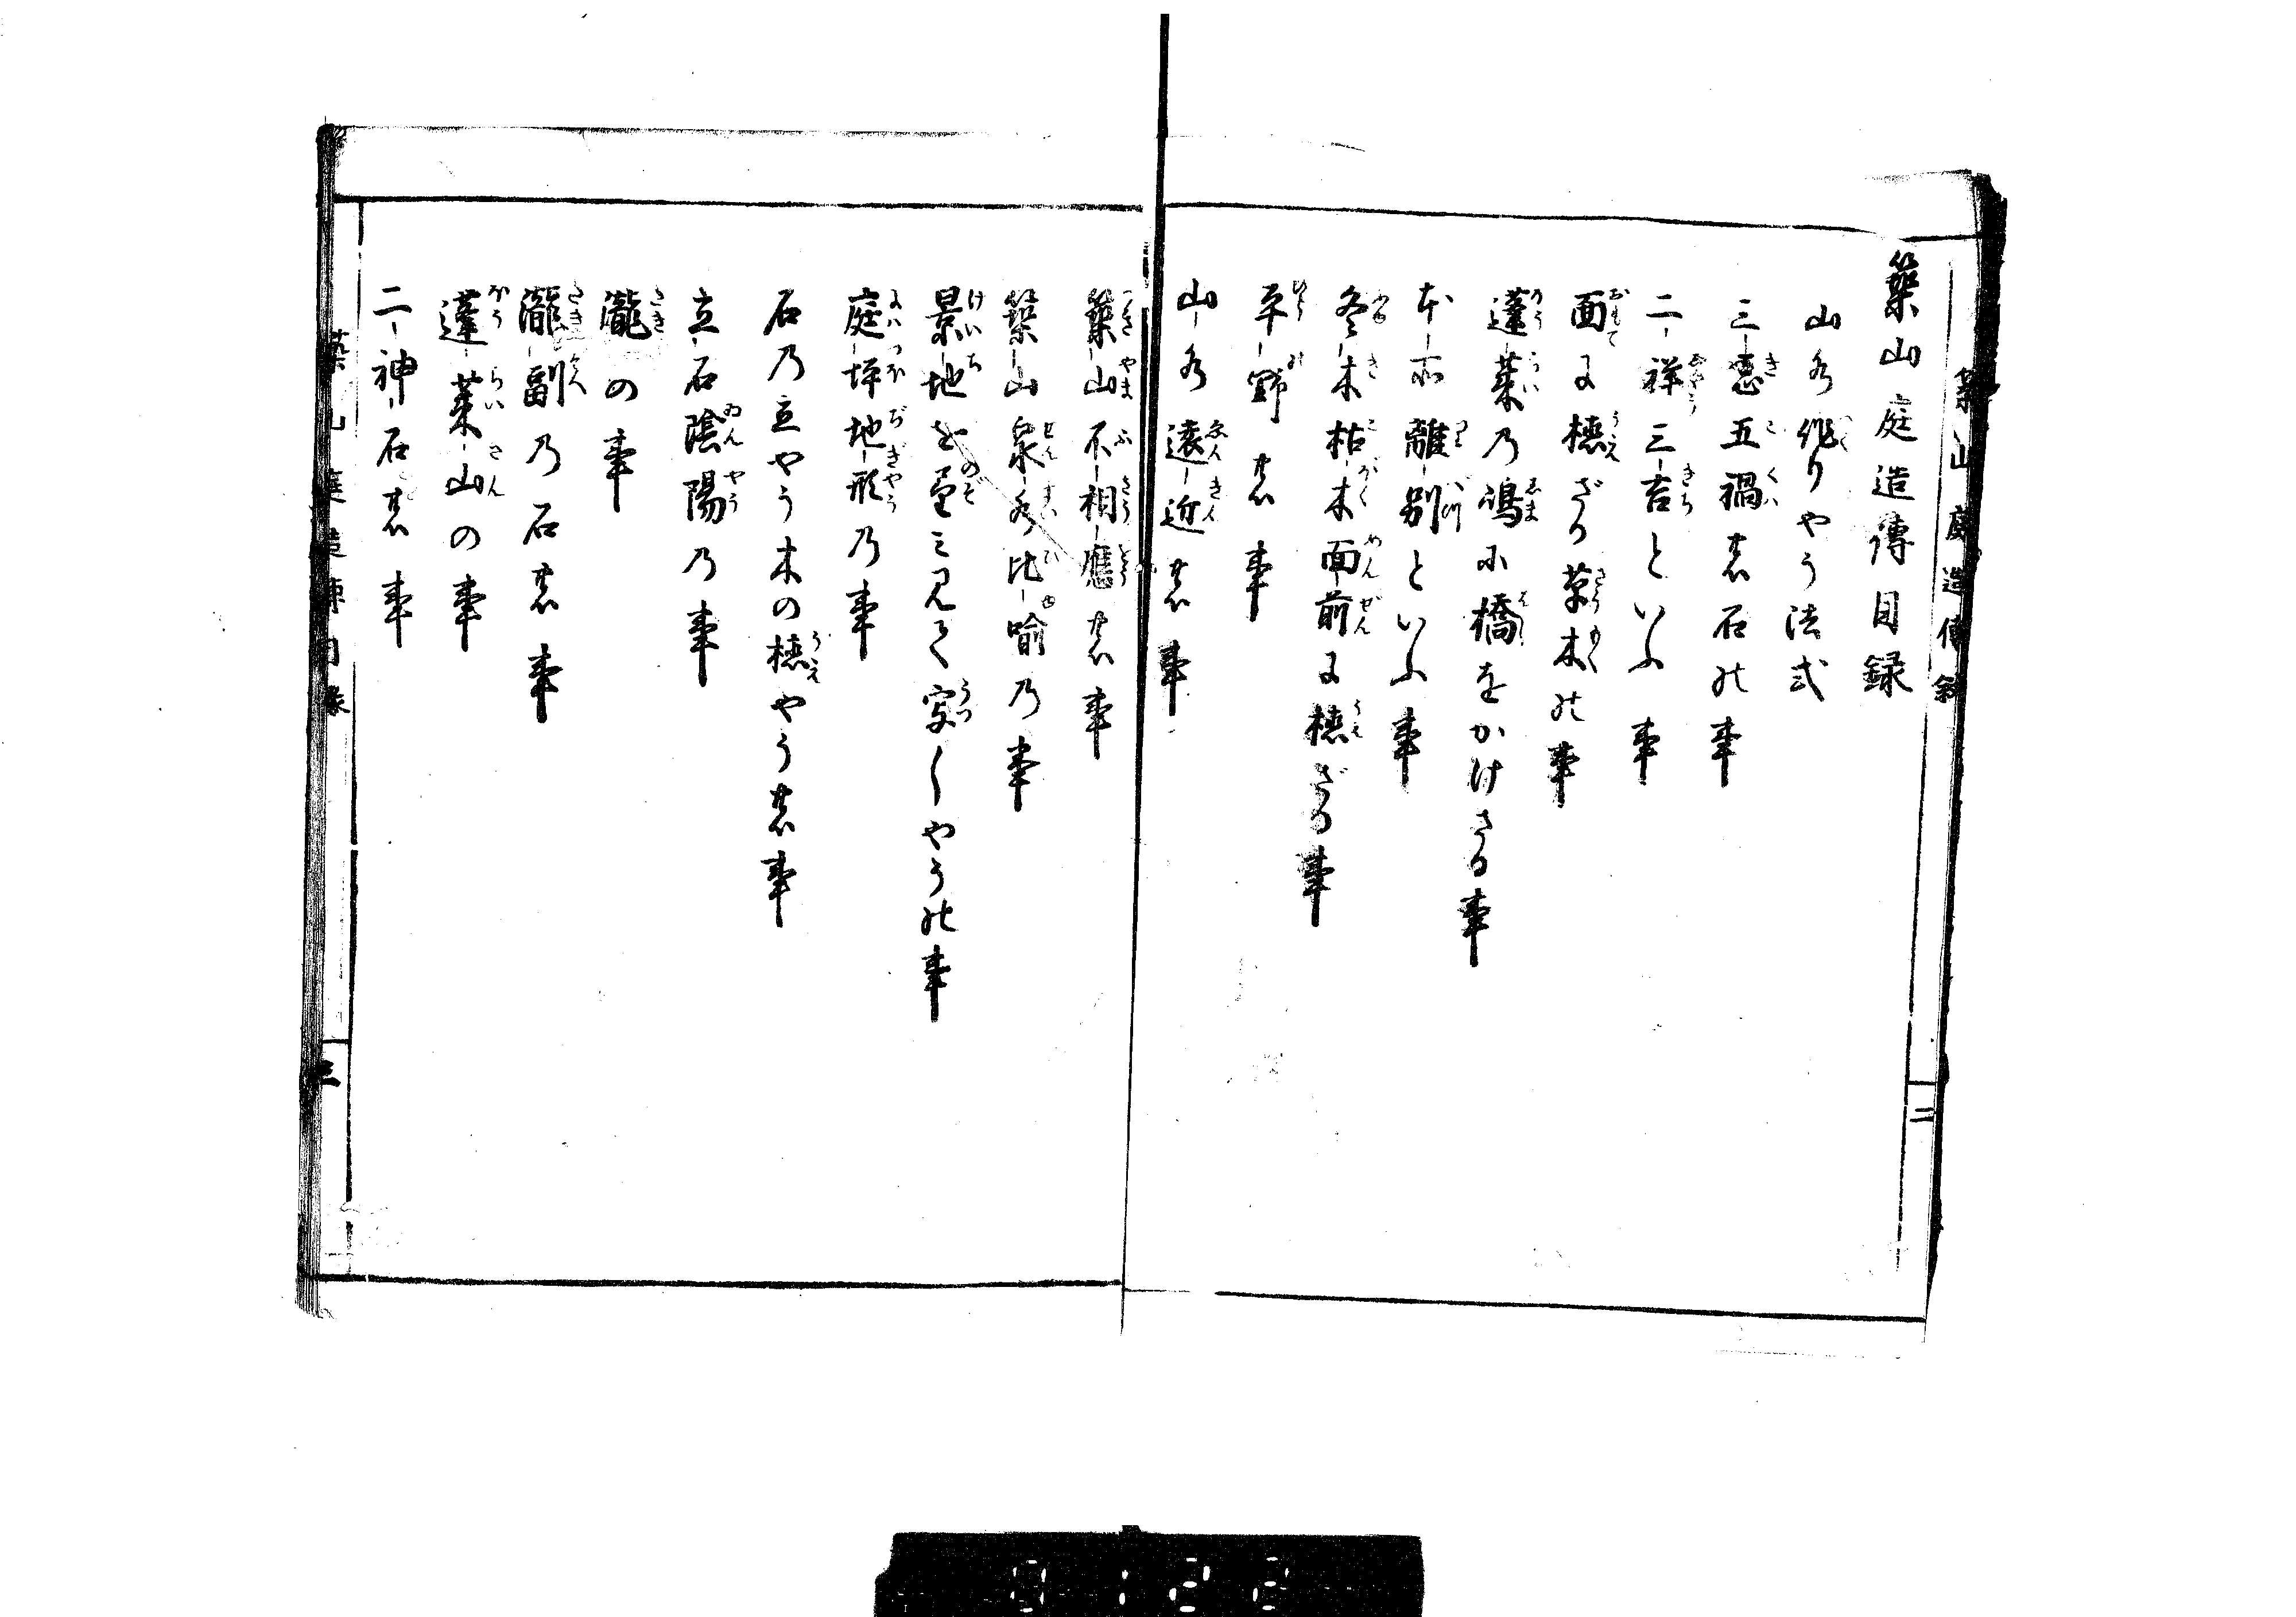 築山庭造傳目録
山水作りやう法式
三忌五禍の石の事
二祥三吉といふ事
面に樹ざる草木の事
蓬莱乃嶋に橋をかけざる事
本所離別といふ事
冬木枯木面前に樹ざる事
平野の事
山水遠近の事
築山不相應の事
築山泉水比喩乃事
景地を望ミ見て写しやうの事
庭坪地形乃事
石乃立やう木の樹やうの事
立石陰陽乃事
瀧の事
瀧副乃石の事
蓬莱山の事
二神石の事
築山庭造傳目録
三
二